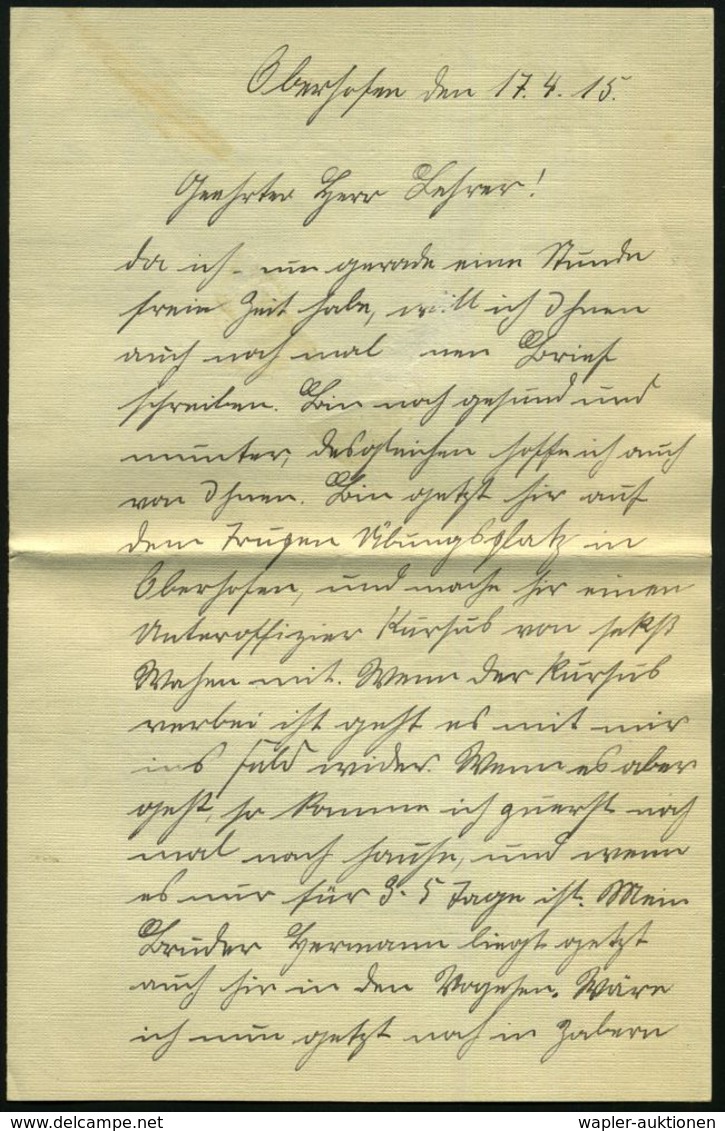 Oberhofen den 17. 4. 15.
Geehrter Herr Lehrer!
da ich nun gerade eine Stunde
freie Zeit habe, will ich Ihnen
auch noch mal nen Brief
schreiben. Bin noch gesund und
munter, desgleichen hoffe ich auch
von Ihnen. Bin getzt hir auf
dem Trupen Übungsplatz in
Oberhofen, und mache hir einen
Unteroffizier Kursus von sekß
Wochen mit. Wenn der Kursus
verbei ist geht es mit mir
ins Feld wider. Wenn es aber
geht, so komme ich zuerst noch
mal nach hause, und wenn
es nur für 3-5 Tage ist. Mein
Bruder Hermann liegt getzt
auch hir in den Vogesen. Wäre
ich nun getzt noch in Zabern
wapler-auktionen